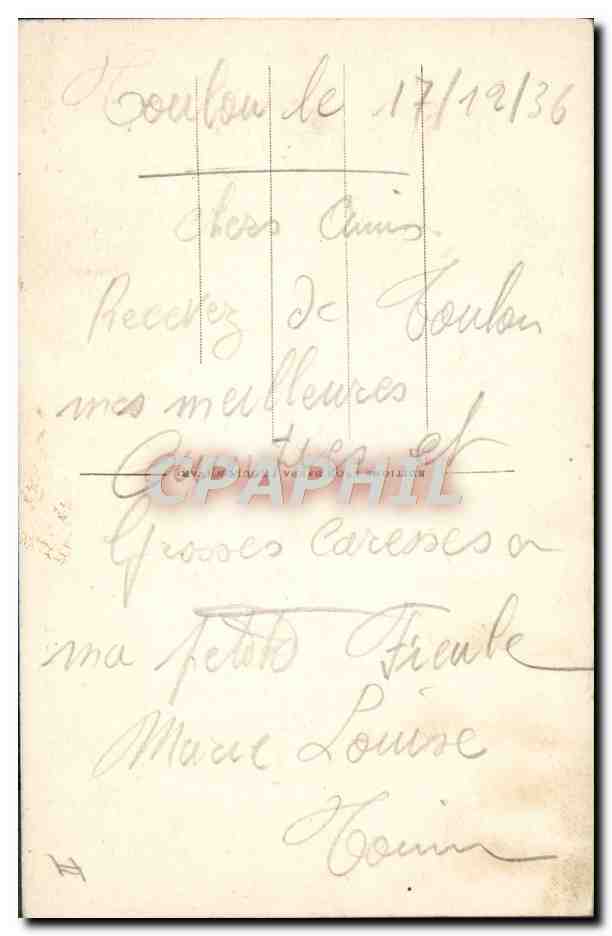 Toulon le 17/12/36
chers Amis
Recevez de Toulon
mes meilleures
Amitiés et
CPAPHIL
Grosses caresses a
ma petite
Marie Louise
Tonin